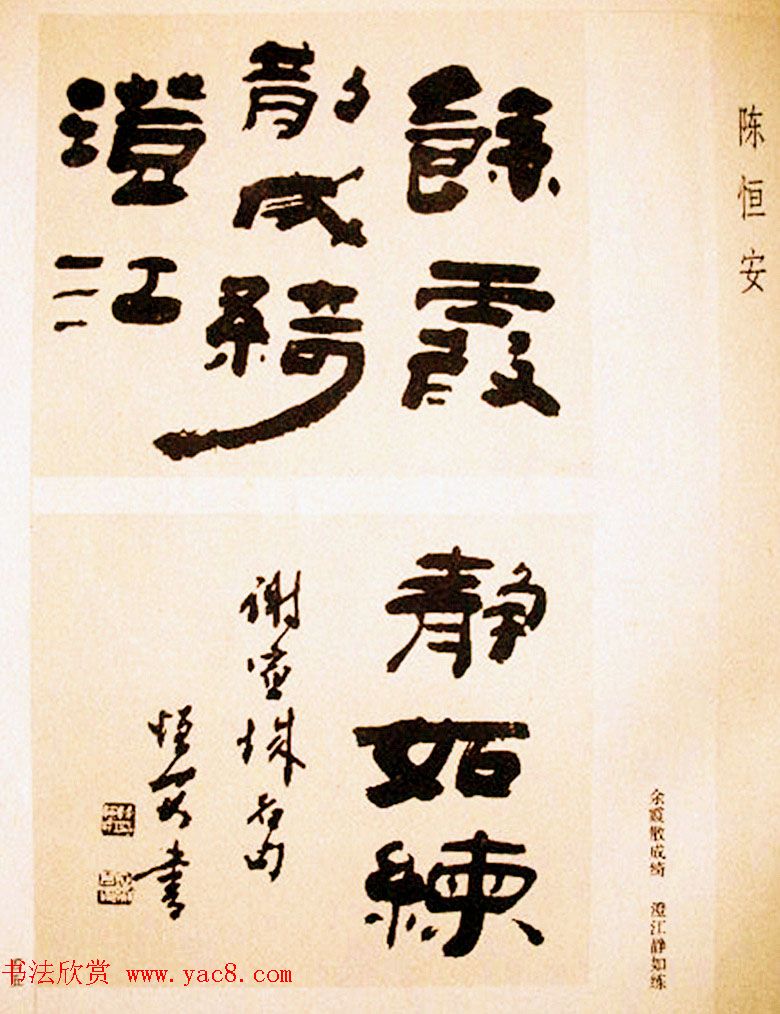 陈恒安
餘霞
散成綺
澄江
靜如練
谢宣城名句
恒安書
余霞散成绮 澄江静如练
书法欣赏 www.yac8.com